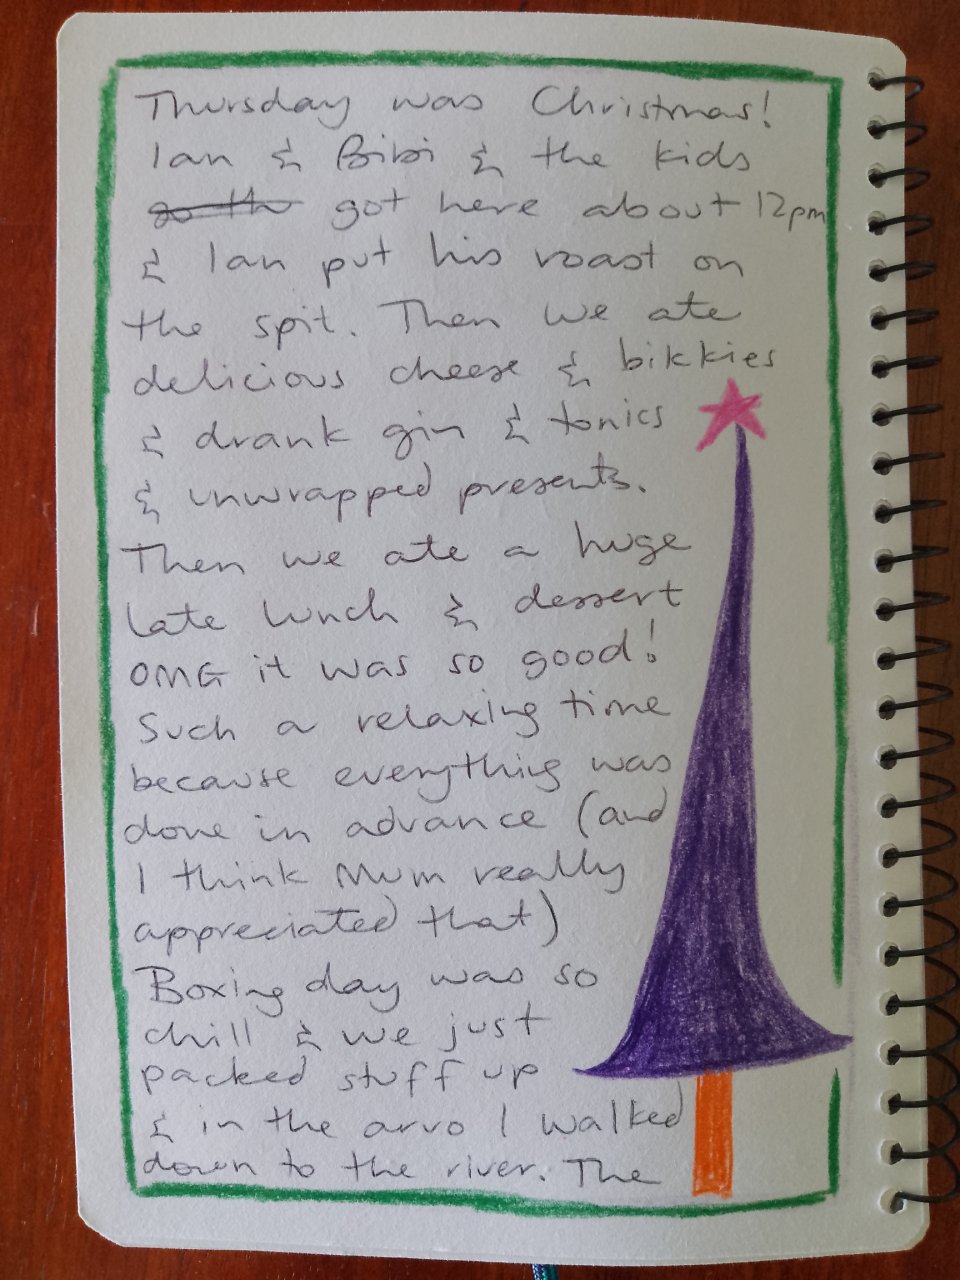 Thursday was Christmas!
Ian & Bibi & the kids
go th got here about 12pm
& Ian put his roast on
the spit. Then we ate
delicious cheese & bikkies
& drank gin & tonics
& unwrapped presents.
Then we ate a huge
late lunch & dessert
OMG it was so good!
Such a relaxing time
because everything was
done in advance (and
I think Mum really
appreciated that)
Boxing day was so
chill & we just
packed stuff up
& in the arvo I walked
down to the river. The